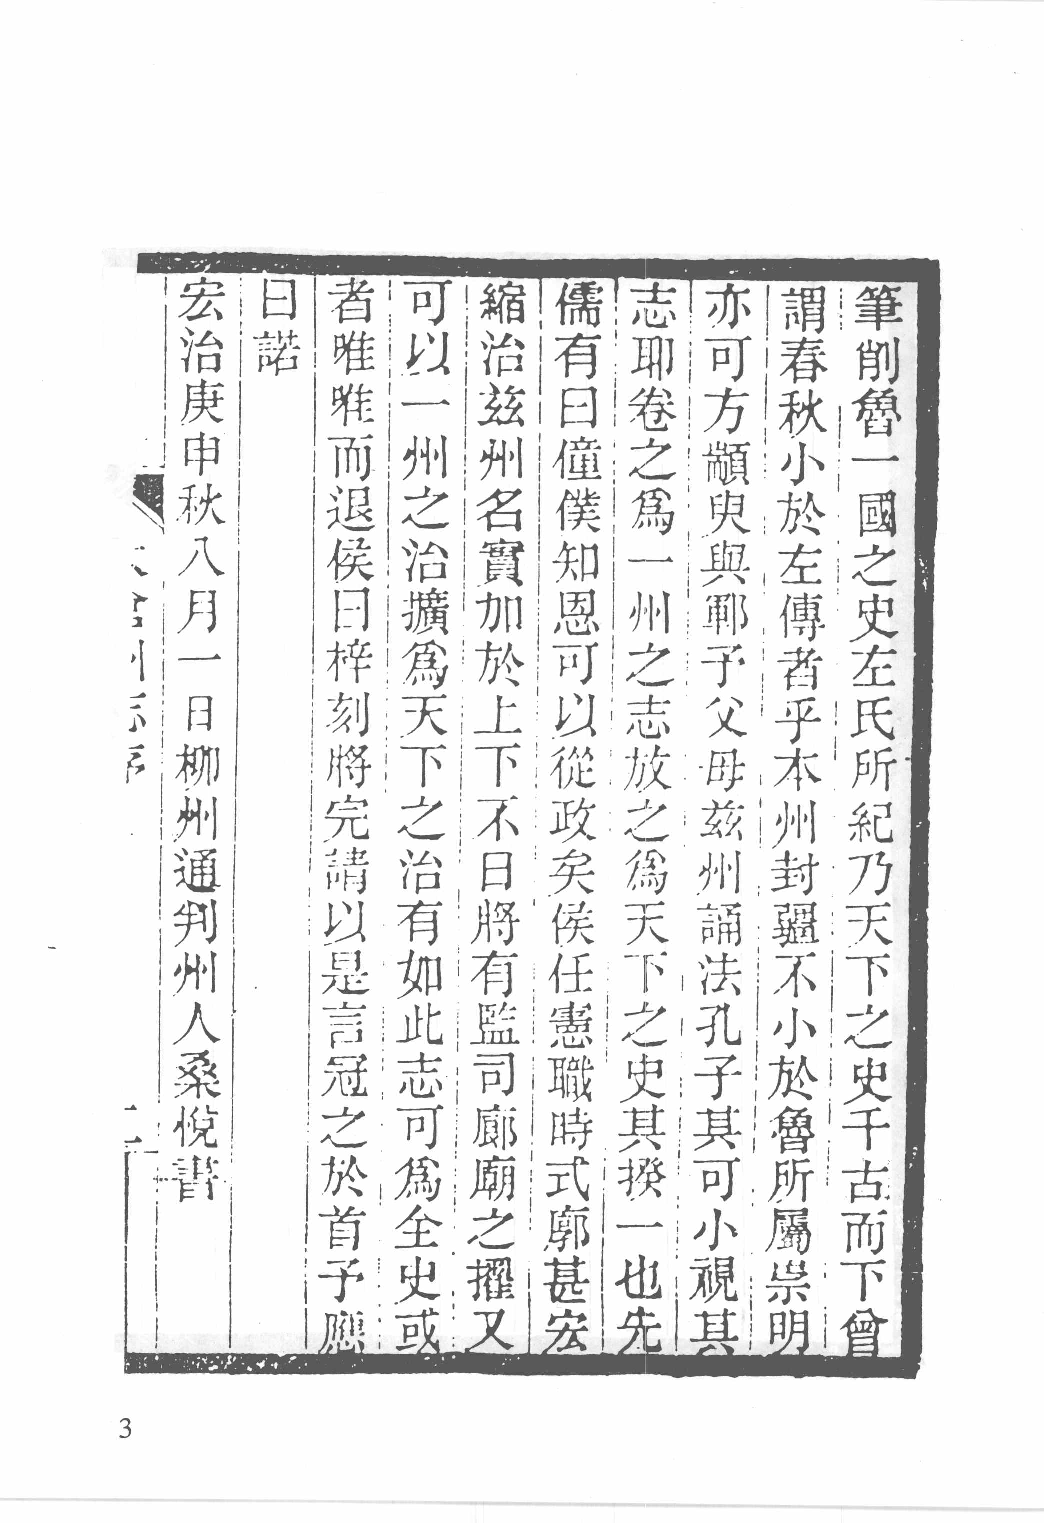 筆削魯一國之史左氏所紀乃天下之史千古而下曾
謂春秋小於左傳者乎本州封疆不小於魯所屬崇明
亦可方顓臾與鄆予父母兹州誦法孔子其可小視其
志耶卷之爲一州之志放之爲天下之史其揆一也先
儒有曰僮僕知恩可以從政矣侯任憲職時式廓甚宏
縮治兹州名實加於上下不日將有監司廊廟之擢又
可以一州之治擴爲天下之治有如此志可爲全史或
者唯唯而退侯曰梓刻將完請以是言冠之於首予應
曰諾
宏治庚申秋八月一日柳州通判州人桑悅書
州志序
二
3